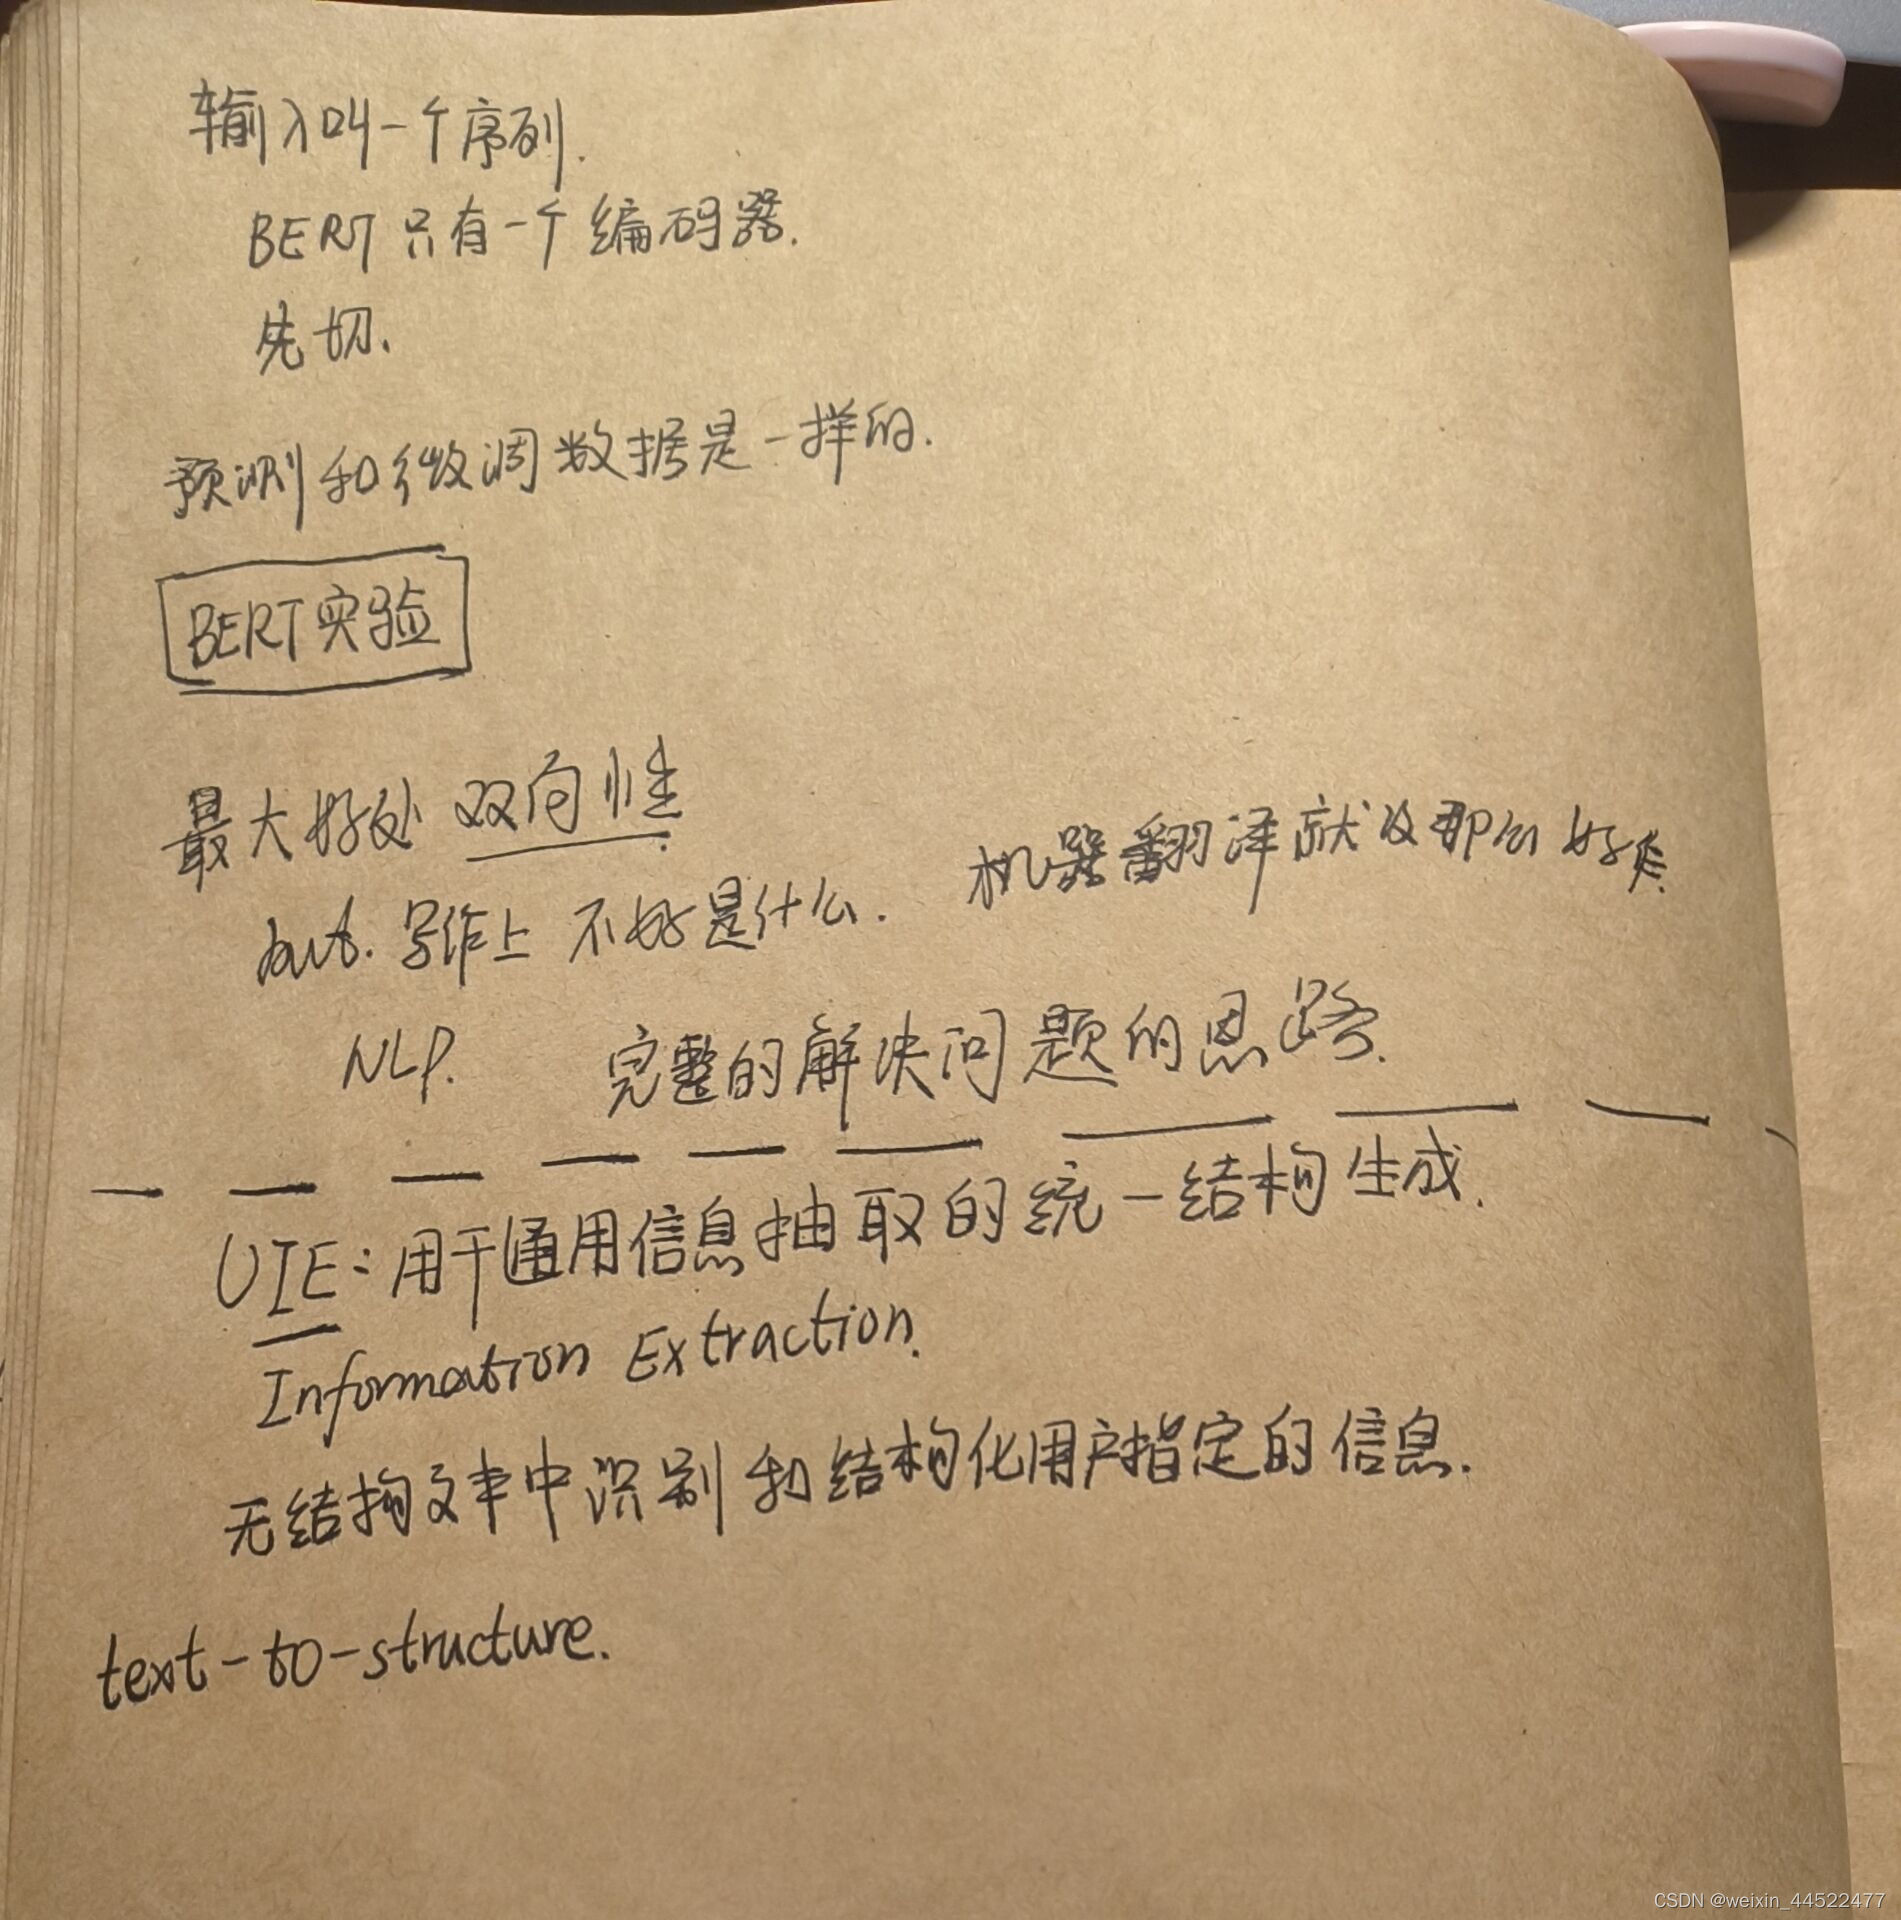 输入叫一个序列.
BERT只有一个编码器.
先切.
预测和微调数据是一样的.
BERT实验
最大好处 双向性
but. 写作上 不好是什么. 机器翻译就没那么好做.
NLP. 完整的解决问题的思路.
UIE: 用于通用信息抽取的统一结构生成.
Information Extraction.
无结构文本中识别和结构化用户指定的信息.
text-to-structure.
CSDN @weixin_44522477